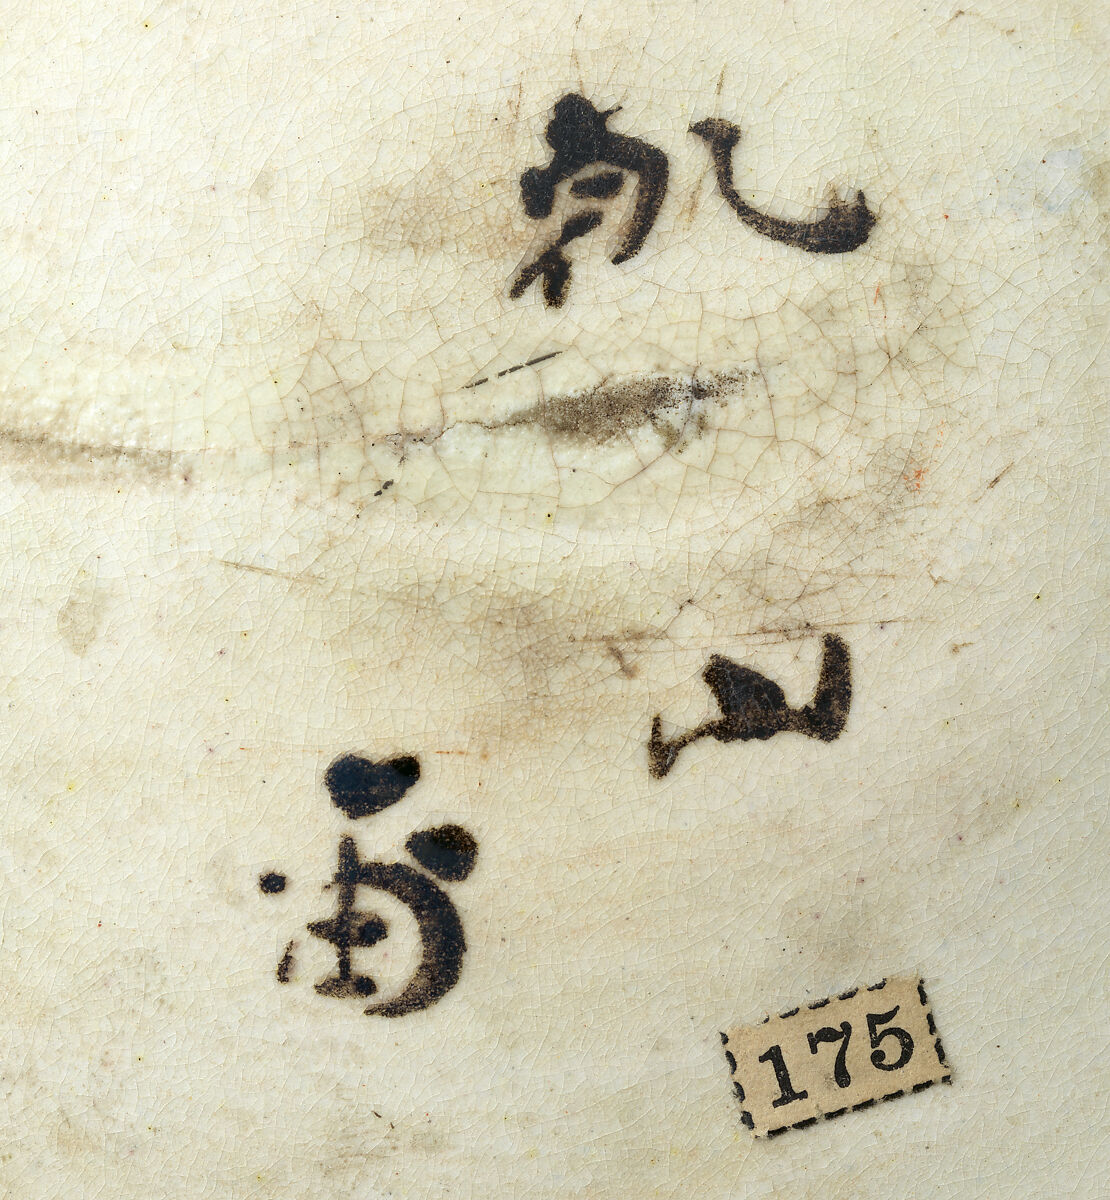 乾
山
175